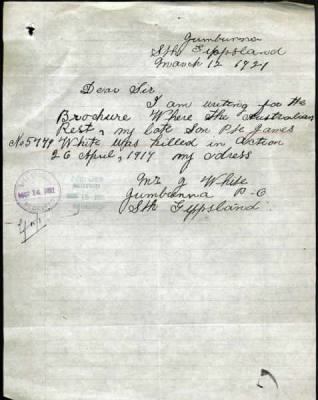 Jumbunna
Sth Gippsland
March 12 1921
Dear Sir
I am writing for the
Brochure Where the Australian
Rest, my late Son Pte James
No 5779 White was killed in action
26 April, 1917 my adress
Mr J White
Jumbunna P.O
Sth Gippsland